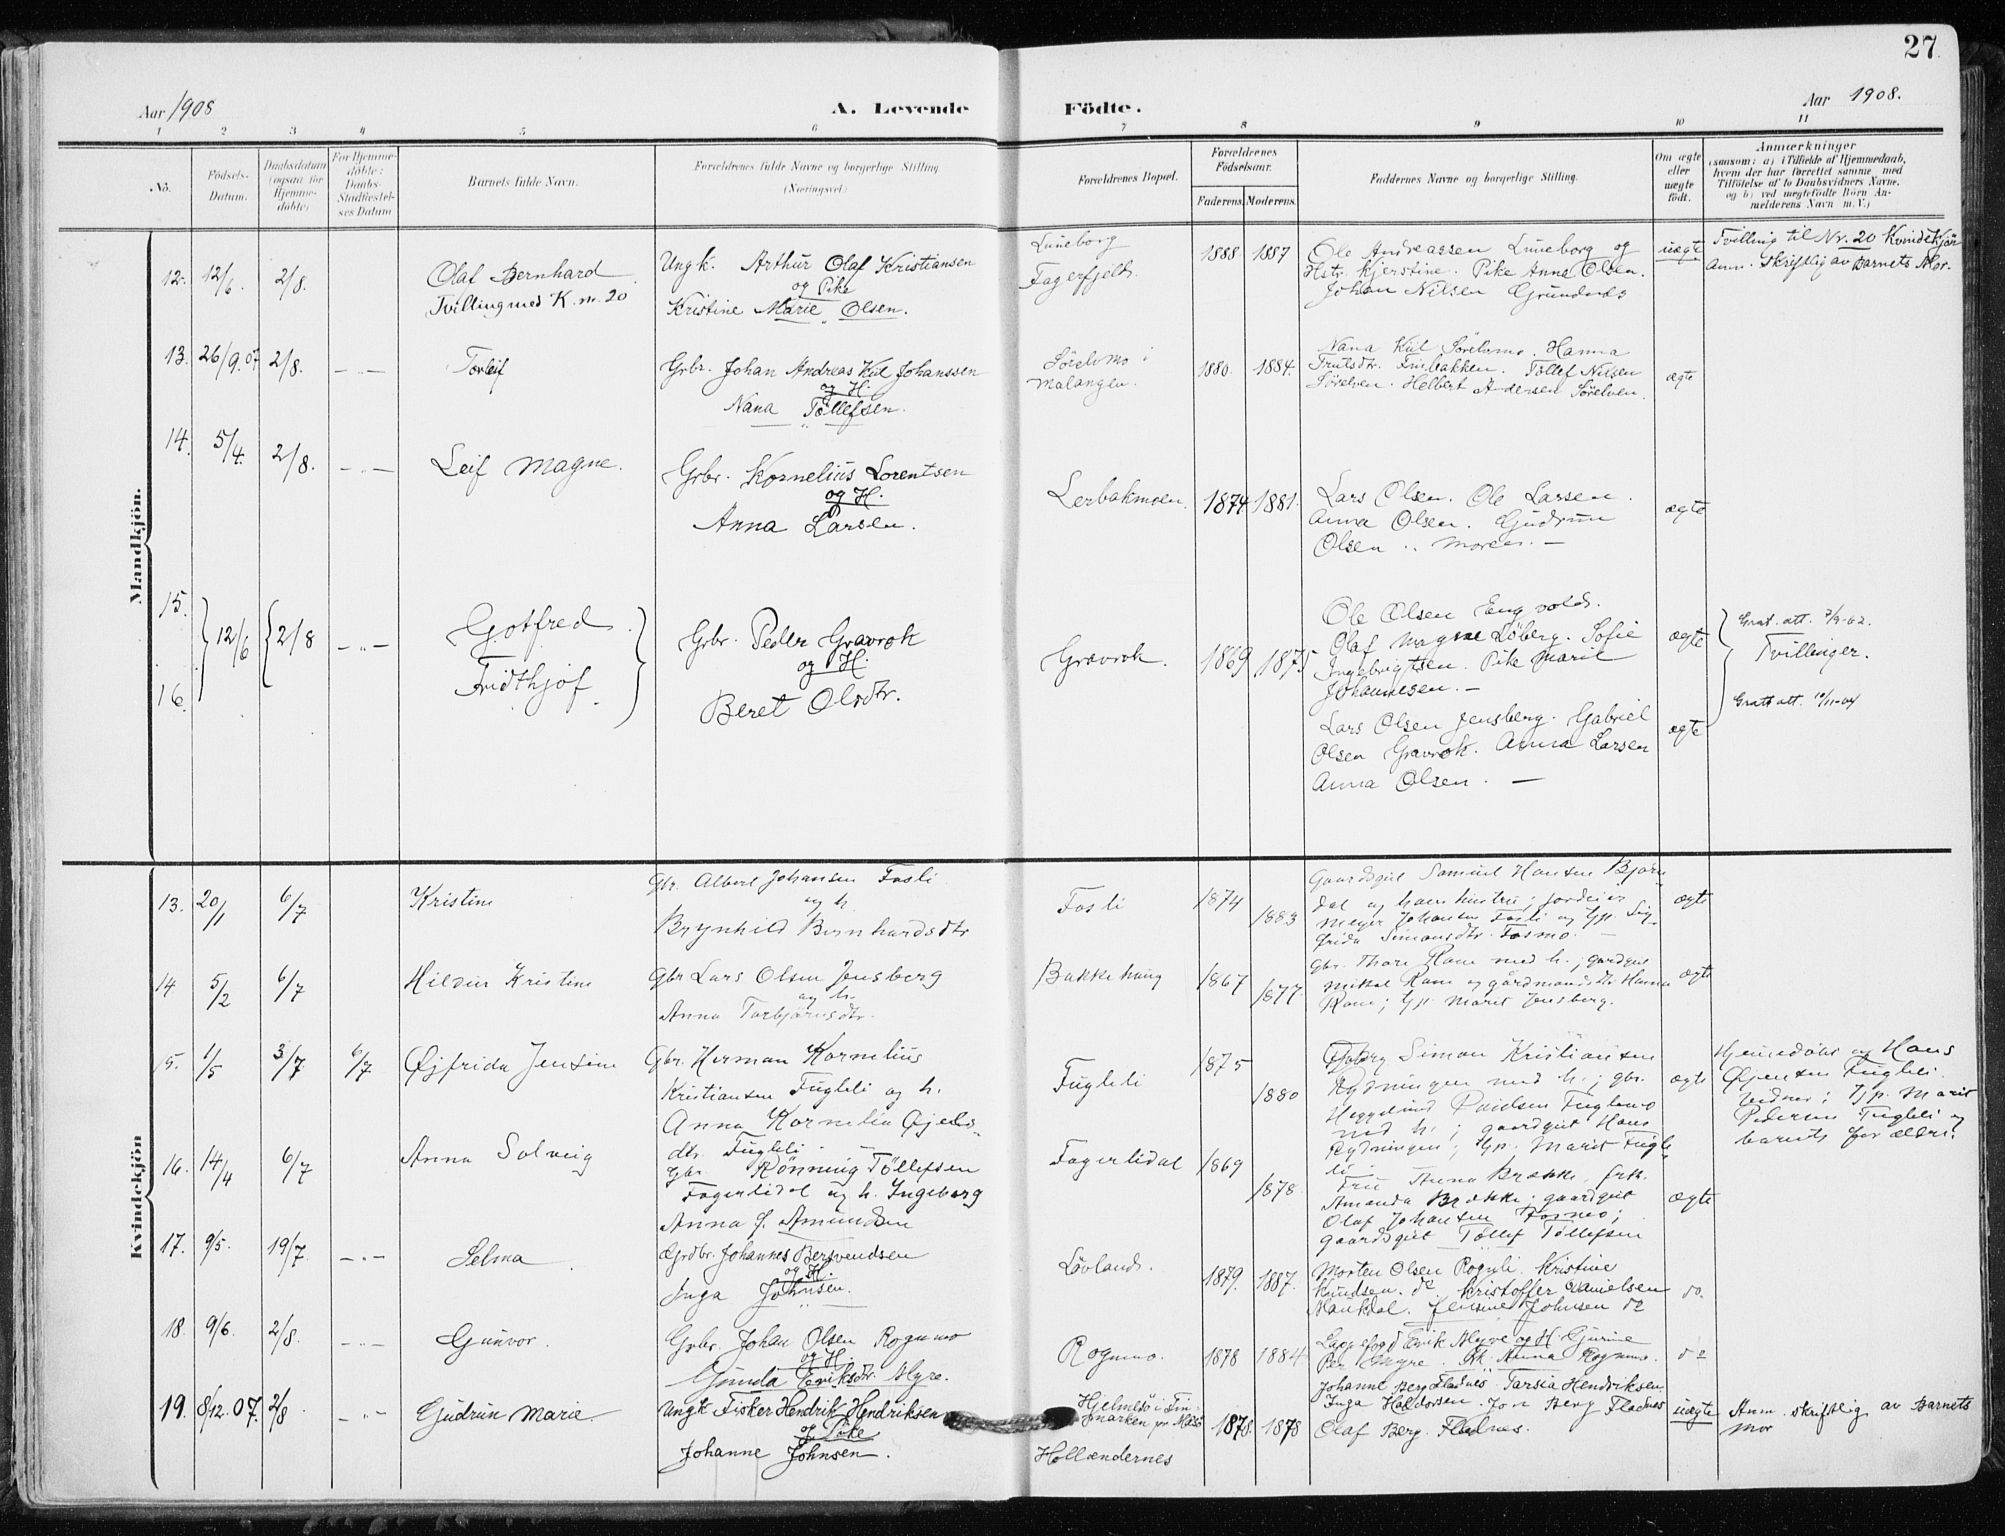 27.
Aar 1908
A. Levende Födte.
Aar 1908.
1 2 3 4 5 6 7 8 9 10 11
No.
Födsels-
Datum.
Daabsdatum
(ogsaa for
Hjemme-
döbte)
For Hjemme-
döbte:
Daabs-
Stadfæstel-
ses Datum
Barnets fulde Navn.
Forældrenes fulde Navne og borgerlige Stilling
(Næringsvei)
Forældrenes Bopæl.
Forældrenes
Födselsaar.
Faderens. Moderens.
Faddernes Navne og borgerlige Stilling.
Om ægte
eller
uægte
födt.
Anmærkninger
(saasom: a) i Tilfælde af Hjemmedaab,
hvem der har forrettet samme, med
Tilföielse af to Daabsvidners Navne,
og b) ved uægtefödte Börn An-
melderens Navn m. V.)
Mandkjön.
12. 12/6. 2/8.
Olaf Bernhard
Tvilling med K. nr. 20
Ungk. Arthur Olaf Kristiansen
og Pike
Kristine Marie Olsen.
Luneborg
Fagerfjeld.
1888 1887
Ole Andreassen Luneborg og
Hstr. Kjerstine. Pike Anna Olsen.
Johan Nilsen Grundnæs
uægte
Tvilling til Nr. 20 Kvindekjön
Anm. Skriftlig av Barnets Mor.
13. 26/9. 07 2/8. — „ —
Torleif
Grbr. Johan Andreas Kiil Johanssen
og H.
Nana Töllefsen.
Sörelvmo i
Malangen.
1880. 1884.
Nana Kiil Sörelvmo. Hanna
Trulsdtr. Finbakken. Tollef Nilsen
Sörelven. Helbert Andersen Sörelven.
ægte
14. 5/4. 2/8. — „ —
Leif Magne.
Grbr. Kornelius Lorentsen
og H.
Anna Larsen.
Lerbakmoen.
1874 1881.
Lars Olsen. Ole Larsen.
Anna Olsen. Gudrun
Olsen .. Moren. —
ægte
15.
16. 12/6 2/8 — „ —
Gotfred
Fridthjof.
Grbr. Peder Gravrok
og H.
Beret Olsdtr.
Gravrok.
1869 1875
Ole Olsen Engvold.
Olaf Magne Löberg. Sofie
Ingebrigtsen. Pike Marie
Johannesen. —
Lars Olsen Jensberg. Gabriel
Olsen Gravrok. Anna Larsen
Anna Olsen. —
ægte
ægte
Grat. att. 7/9-62.
Tvillinger.
Gratt att. 10/11-04
Kvindekjön
13. 20/1 6/7
Kristine
Gbr. Albert Johansen Fosli
og h.
Brynhild Bernhardsdtr
Fosli
1874 1883
Gaardsgut Samuel Hansen Bjørn
dal og hans hustru; jordeier
Meyer Johansen Fosli og Gp. Sig-
frida Simonsdtr. Fosmo. —
ægte
14 5/2 6/7
Hildur Kristine
Gbr Lars Olsen Jensberg
og h.
Anna Torbjørnsdtr.
Bakkehaug
1867 1877
Gbr. Thore Ram med h.; gardgut
Mikkal Ram og gårdmandsdtr Hanna
Ram; Gp. Marit Jensberg.
ægte
15. 1/5 3/7 6/7
Øjfrida Jensine
Gbr. Herman Kornelius
Kristiansen Fugleli og h.
Anna Kornelia Øjens-
dtr. Fugleli
Fugleli
1875 1880
Simon Kristiansen
Rydningen med h.; gbr.
Heggelund Paulsen Fuglemo
med h.; gaardgut Hans
Rydningen; Gp. Marit Fugle
li
ægte
Hjemmedöbt og Hans
Øjensen Fugleli
vidner; Gp. Marit
Pedersen Fugleli og
barnets forældre.
16. 14/4 6/7
Anna Solveig
Gbr. Rönning Töllefsen
Fagerlidal og h. Ingeborg
Anna f. Amundsen
Fagerlidal
1869 1878.
Fru Anna Brække, frk.
Amanda Brække; gaardgut
Olaf Johansen Fosmo;
gaardsgut Tollef Töllefsen
ægte
17. 9/5. 19/7 — „ —
Selma
Grdbr. Johannes Bersvendsen
og H.
Inga Johnsen.
Lövland.
1879. 1887.
Morten Olsen Rognli. Kristine
Knudsen. do Kristoffer Danielsen
Maukdal. Jensine Johnsen do
do.
18. 9/6. 2/8. — „ —
Gunvor.
Grbr. Johan Olsen Rognmo
og H.
Gunda Eriksdtr. Myre.
Rognmo.
1878 1884
Lappefogd Erik Myre og H. Gurine
Per Myre. Anna Rognmo.
do
19. 8/12. 07. 2/8 — „ —
Gudrun Marie.
Ungk Fisker Hendrik Hendriksen
og Pike
Johanne Johnsen.
Hjelmsö i Fin-
marken per Masö
Hollændernes
1878. 1878
Johanne Berg Fladnes Tarsia Hendriksen.
Inga Halldorsen. Jon Berg Fladnes
Olaf Berg. Fladnes.
uægte
Anm. skriftlig av Barnets
Mor